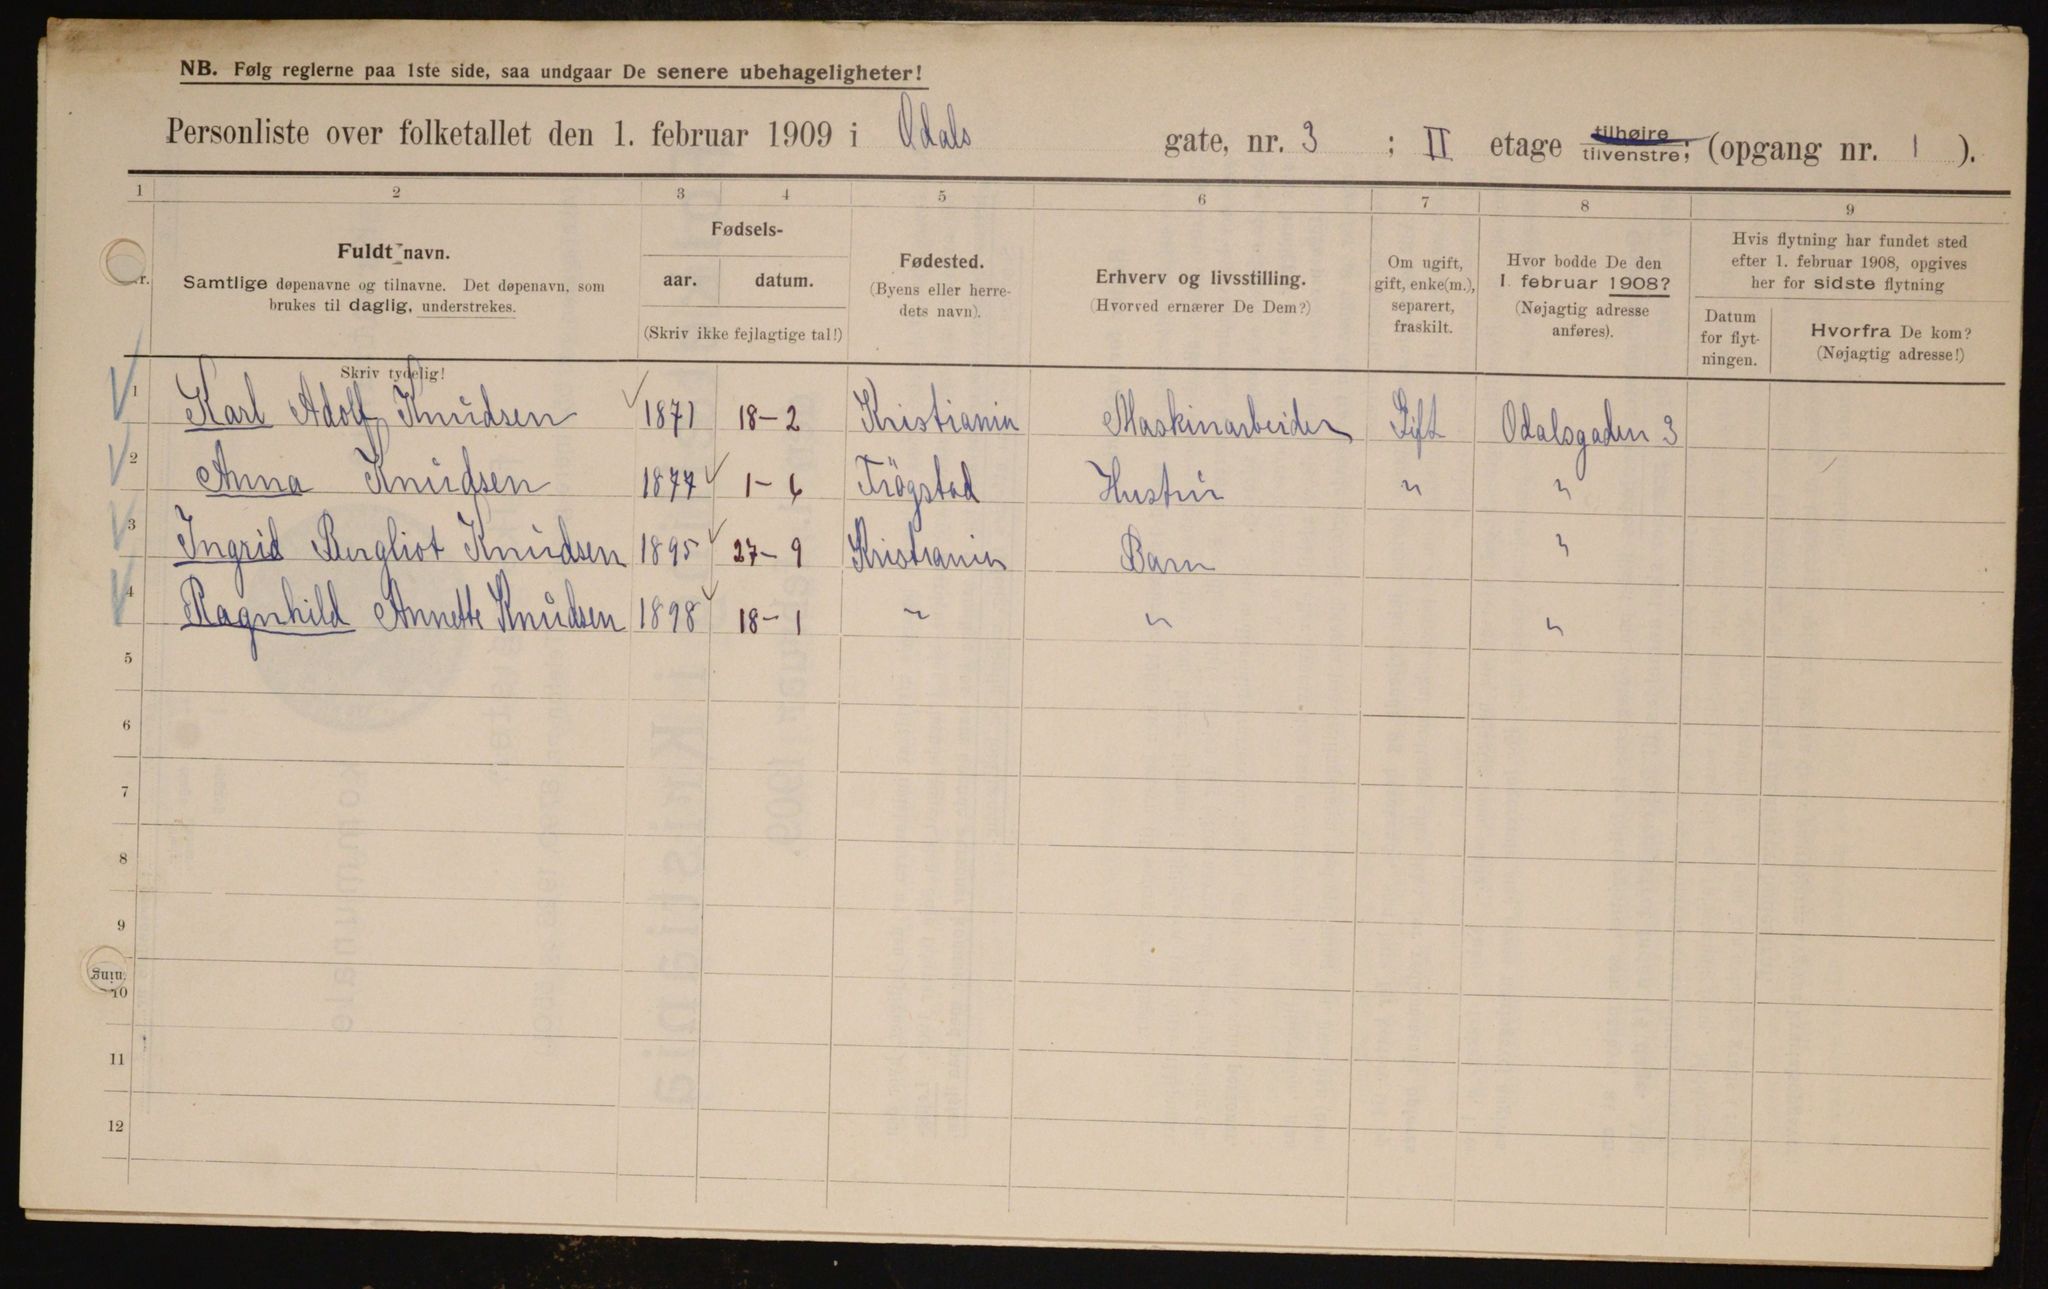 NB. Følg reglerne paa 1ste side, saa undgaar De senere ubehageligheter!
Personliste over folketallet den 1. februar 1909 i Odals gate, nr. 3 ; II etage tilhøire tilvenstre; (opgang nr. 1 ).
1 2 3 4 5 6 7 8 9
Fuldt navn.
Samtlige døpenavne og tilnavne. Det døpenavn, som
brukes til daglig, understrekes.
Skriv tydelig!
Fødsels-
aar. datum.
(Skriv ikke fejlagtige tal!)
Fødested.
(Byens eller herre-
dets navn).
Erhverv og livsstilling.
(Hvorved ernærer De Dem?)
Om ugift,
gift, enke(m.),
separert,
fraskilt.
Hvor bodde De den
1. februar 1908?
(Nøjagtig adresse
anføres).
Hvis flytning har fundet sted
efter 1. februar 1908, opgives
her for sidste flytning
Datum
for flyt-
ningen.
Hvorfra De kom?
(Nøjagtig adresse!)
1 Karl Adolf Knudsen 1871 18-2 Kristiania Maskinarbeider Gift Odalsgaden 3
2 Anna Knudsen 1877 1-6 Trögstad Hustru " "
3 Ingrid Bergliot Knudsen 1895 27-9 Kristiania Barn "
4 Ragnhild Annette Knudsen 1898 18-1 " " "
5
6
7
8
9
10
11
12